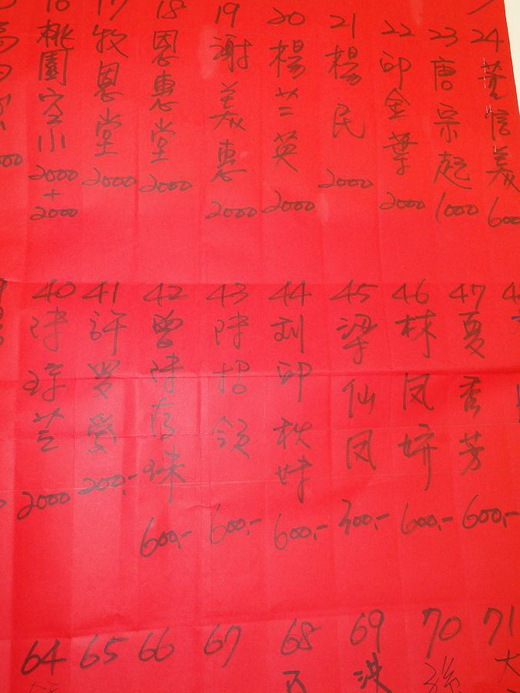 桃園空小 2000+2000
17 牧恩堂 2000
18 恩惠堂 2000
19 謝美惠 2000
20 楊芒英 2000
21 楊民 2000
22 邱金葉 2000
23 唐宗起 1000
24 信義 600
40 陳瑋芝 2000
41 許 愛 200.-
42 曾陳 珠 600.-
43 陳招領 600.-
44 劉邱秋妹 600.-
45 梁仙凤 300.-
46 林凤娇 600.-
47 夏秀芳 600.-
64
65
66
67
68
69 洪
70 張
71